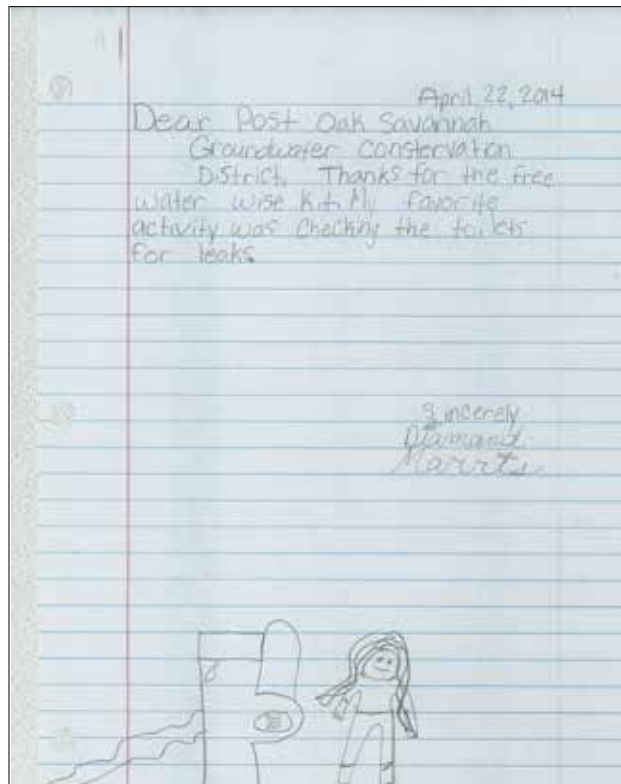 April 22, 2014
Dear Post Oak Savannah
Groundwater Constervation
District. Thanks for the free
water wise kit. My favorite
activity was checking the toilets
for leaks.
Sincerely
Diamand